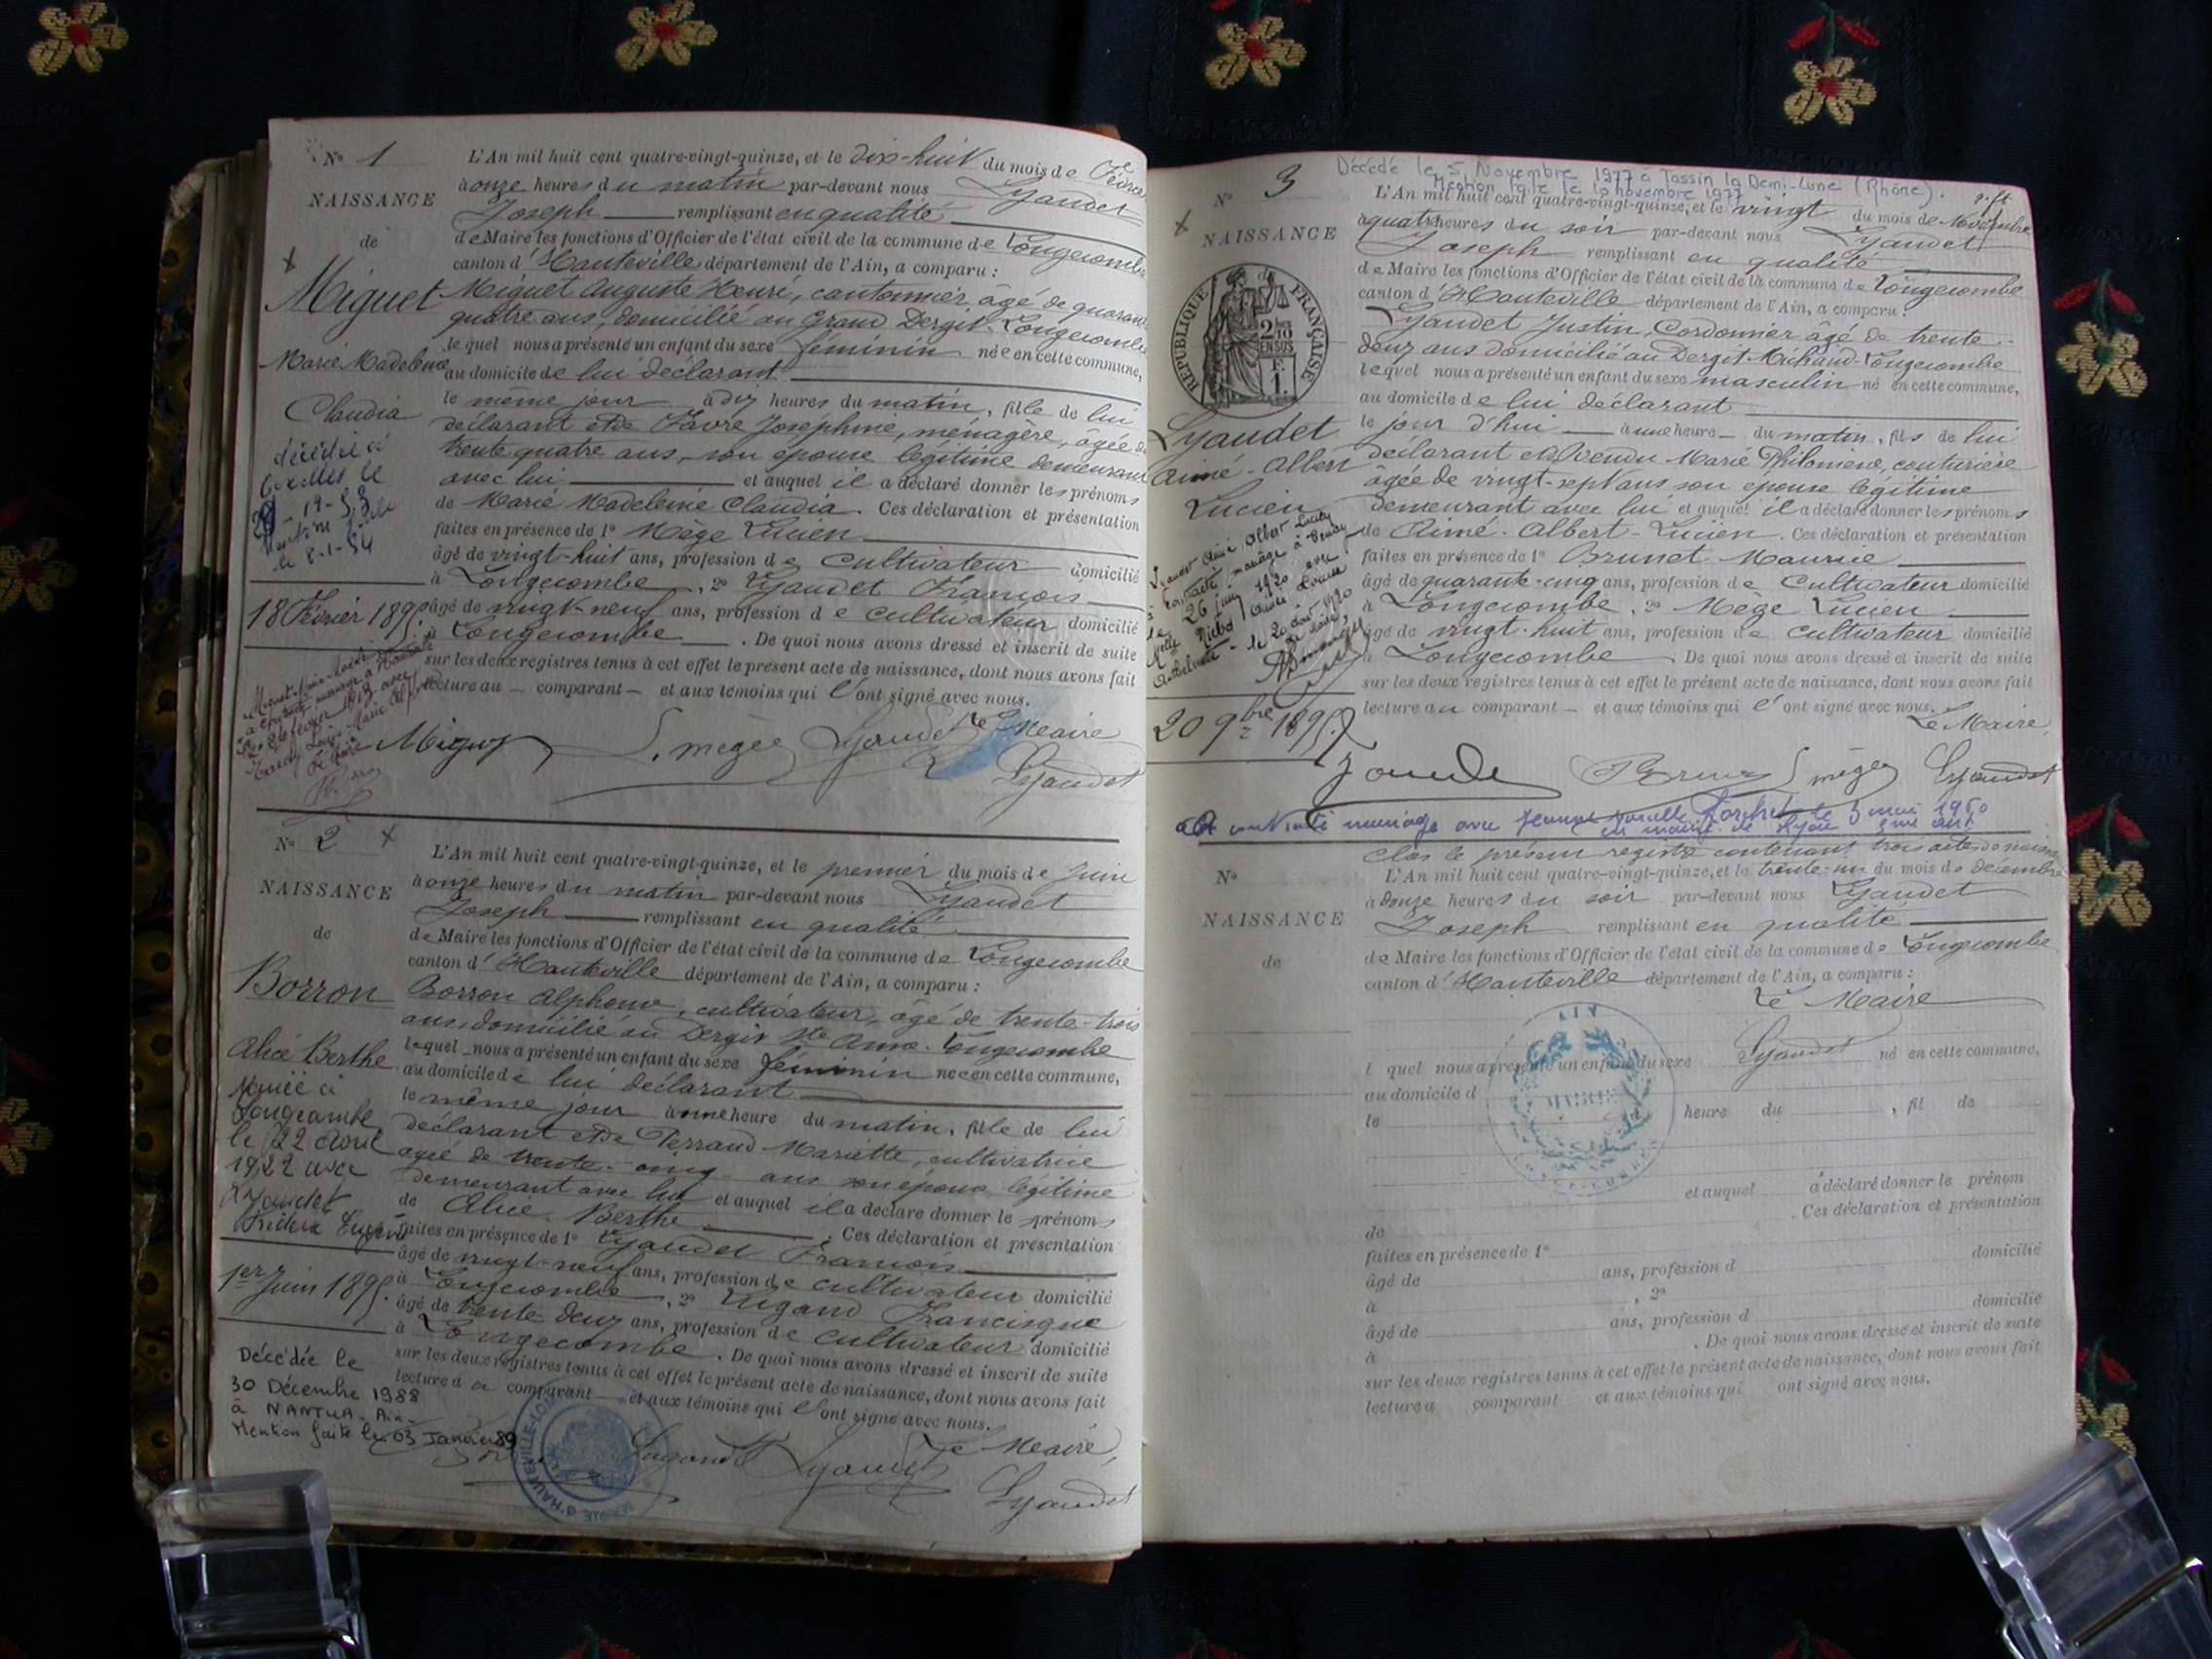 N° 1
NAISSANCE
de
Miguet
Marie Madeleine
Claudia
décédée à
le
8-1-54
18 Février 1895
L'An mil huit cent quatre-vingt-quinze, et le dix-huit du mois de Février
à onze heures du matin par-devant nous Lyaudet
Joseph remplissant en qualité
de Maire les fonctions d'Officier de l'état civil de la commune de Longecombe
canton d'Hauteville département de l'Ain, a comparu :
Miguet Auguste Henri, cantonnier âgé de quarante
quatre ans, domicilié au Grand Dergit-Longecombe
lequel nous a présenté un enfant du sexe féminin née en cette commune,
au domicile de lui déclarant
le même jour à dix heures du matin, fille de lui
déclarant et de Favre Joséphine, ménagère, âgée de
trente quatre ans, son épouse légitime demeurant
avec lui et auquel il a déclaré donner les prénoms
de Marie Madeleine Claudia. Ces déclaration et présentation
faites en présence de 1° Mège Lucien
âgé de vingt-huit ans, profession de cultivateur domicilié
à Longecombe, 2° Lyaudet François
âgé de vingt-neuf ans, profession de cultivateur domicilié
à Longecombe. De quoi nous avons dressé et inscrit de suite
sur les deux registres tenus à cet effet le présent acte de naissance, dont nous avons fait
lecture au comparant et aux témoins qui l'ont signé avec nous.
Miguet L. mège Lyaudet Le Maire
Lyaudet
N° 2
NAISSANCE
de
Borron
Alice Berthe
Mariée à
Longecombe
le 22 Avril
1922 avec
Lyaudet
1er Juin 1895.
Décédée le
30 Décembre 1988
à NANTUA. Ain.
Mention faite le 03 Janvier 89
L'An mil huit cent quatre-vingt-quinze, et le premier du mois de Juin
à onze heures du matin par-devant nous Lyaudet
Joseph remplissant en qualité
de Maire les fonctions d'Officier de l'état civil de la commune de Longecombe
canton d'Hauteville département de l'Ain, a comparu :
Borron Alphonse, cultivateur, âgé de trente-trois
ans, domicilié au Dergit Ste Anne-Longecombe
lequel nous a présenté un enfant du sexe féminin née en cette commune,
au domicile de lui déclarant
le même jour à une heure du matin, fille de lui
déclarant et de Perraud Mariette, cultivatrice
âgée de trente-cinq ans son épouse légitime
demeurant avec lui et auquel il a déclaré donner le prénoms
de Alice Berthe. Ces déclaration et présentation
faites en présence de 1° Lyaudet François
âgé de vingt-neuf ans, profession de cultivateur domicilié
à Longecombe, 2° Lugand Francisque
âgé de trente deux ans, profession de cultivateur domicilié
à Longecombe. De quoi nous avons dressé et inscrit de suite
sur les deux registres tenus à cet effet le présent acte de naissance, dont nous avons fait
lecture au comparant et aux témoins qui l'ont signé avec nous.
Lugand Lyaudet Le Maire,
Lyaudet
Décédé le 5 Novembre 1977 à Tassin la Demi-Lune (Rhône).
Mention faite le 10 novembre 1977
N° 3
NAISSANCE
RÉPUBLIQUE FRANÇAISE
Lyaudet
Aimé-Albert
Lucien
Lyaudet Aimé Albert Lucien
a contracté mariage à
le 26 juin 1920 avec
le 20 août 1920
20 9bre 1895.
L'An mil huit cent quatre-vingt-quinze, et le vingt du mois de Novembre
à quatre heures du soir par-devant nous Lyaudet
Joseph remplissant en qualité
de Maire les fonctions d'Officier de l'état civil de la commune de Longecombe
canton d'Hauteville département de l'Ain, a comparu :
Lyaudet Justin, Cordonnier âgé de trente-
deux ans domicilié au Dergit-Michaud-Longecombe
lequel nous a présenté un enfant du sexe masculin né en cette commune,
au domicile de lui déclarant
le jour d'hui à une heure du matin, fils de lui
déclarant et de Vendu Marie Philomène, couturière
âgée de vingt-sept ans son épouse légitime
demeurant avec lui et auquel il a déclaré donner les prénoms
de Aimé-Albert-Lucien. Ces déclaration et présentation
faites en présence de 1° Brunet Maurice
âgé de quarante-cinq ans, profession de cultivateur domicilié
à Longecombe, 2° Mège Lucien
âgé de vingt-huit ans, profession de cultivateur domicilié
à Longecombe De quoi nous avons dressé et inscrit de suite
sur les deux registres tenus à cet effet le présent acte de naissance, dont nous avons fait
lecture au comparant et aux témoins qui l'ont signé avec nous.
Le Maire,
Brunet L mège Lyaudet
A contracté mariage avec Jeanne le 3 mai 1960
en mairie de Lyon
Clos le présent registre contenant trois actes de naissance
N°
NAISSANCE
de
L'An mil huit cent quatre-vingt-quinze, et le trente-un du mois de décembre
à douze heures du soir par-devant nous Lyaudet
Joseph remplissant en qualité
de Maire les fonctions d'Officier de l'état civil de la commune de Longecombe
canton d'Hauteville département de l'Ain, a comparu :
Le Maire
Lyaudet
l quel nous a présenté un enfant du sexe né en cette commune,
au domicile d
le heure du , fil de
et auquel a déclaré donner le prénom
de . Ces déclaration et présentation
faites en présence de 1°
âgé de ans, profession d domicilié
à , 2°
âgé de ans, profession d domicilié
à . De quoi nous avons dressé et inscrit de suite
sur les deux registres tenus à cet effet le présent acte de naissance, dont nous avons fait
lecture a comparant et aux témoins qui ont signé avec nous.